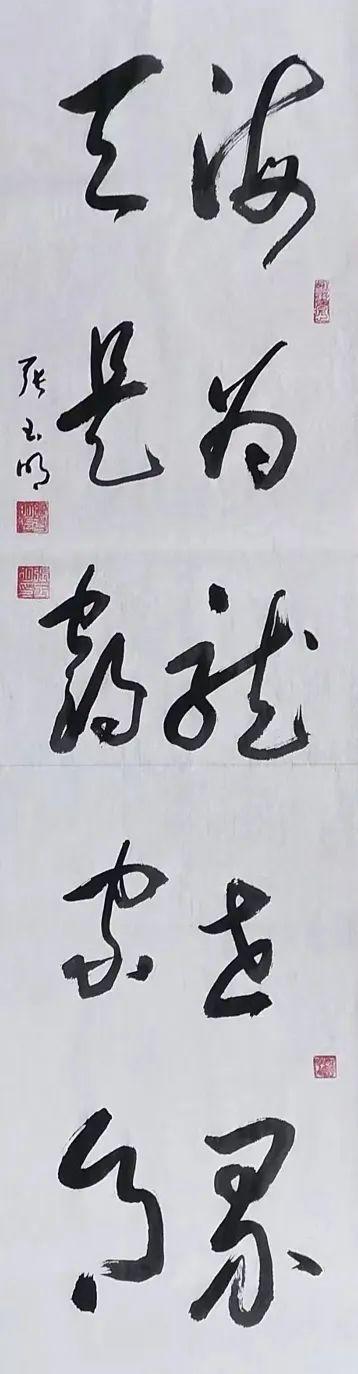 海为龙世界
天是鹤家乡
张玉明